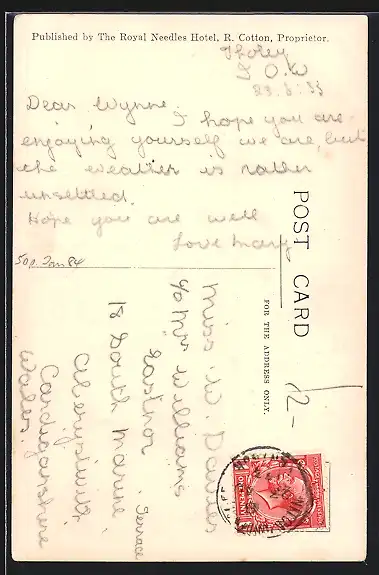 Published by The Royal Needles Hotel, R. Cotton, Proprietor.
I.O.W
23.8.33
Dear Wynne.
I hope you are
enjoying yourself we are, but
the weather is rather
unsettled.
Hope you are well
Love Mary
50p. Jan 84
POST CARD
FOR THE ADDRESS ONLY.
12-
Miss W. Davies
c/o Mrs Williams
Eastnor
18 South Marine
Terrace
Aberystwyth
Cardiganshire
Wales.
ONE PENNY